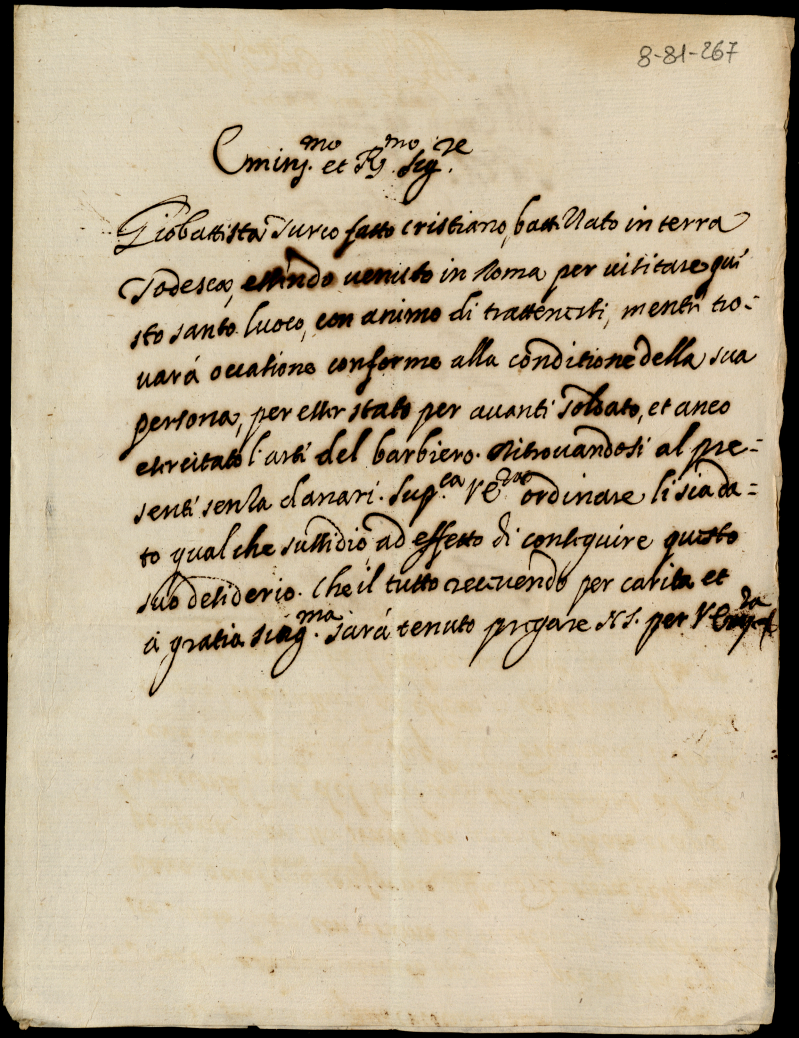 8-81-267
Emin.mo et R.mo Sig.re
Giobattista Turco fatto cristiano, battezzato in terra
Todesca, essendo venuto in Roma per visitare que
sto santo luoco, con animo di trattenersi, mentre tro=
vará occasione conforme alla conditione della sua
persona, per esser stato per avanti soldato, et anco
esercitato l'arte del barbiero. Ritrovandosi al pre=
sente senza danari. Sup.ca VE.za ordinare li sia da=
to qualche sussidio, ad effetto di conseguire questo
suo desiderio. Che il tutto recevendo per carita et
á gratia sing.ma sará tenuto pregare N.S. per V Em.za